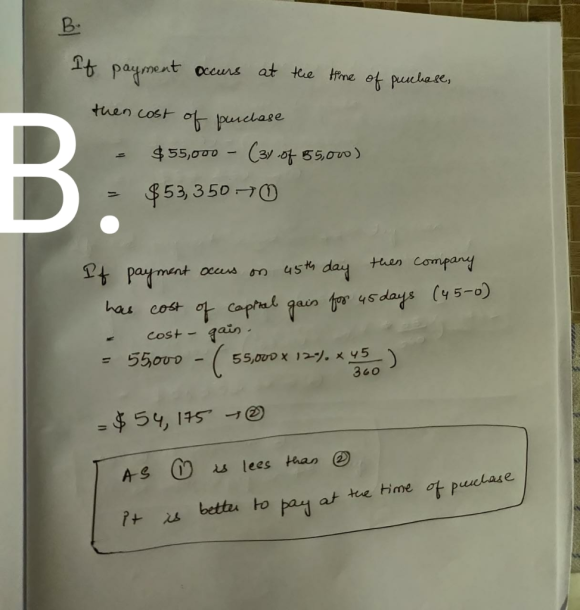 B.
If payment occurs at the time of purchase,
then cost of purchase
= $55,000 - (3% of 55,000)
= $53,350 → ①
B.
If payment occurs on 45th day then company
has cost of capital gain for 45 days (45-0)
= cost - gain.
= 55,000 - ( 55,000 × 12% × 45/360 )
= $54,175 → ②
AS ① is lees than ②
it is better to pay at the time of purchase